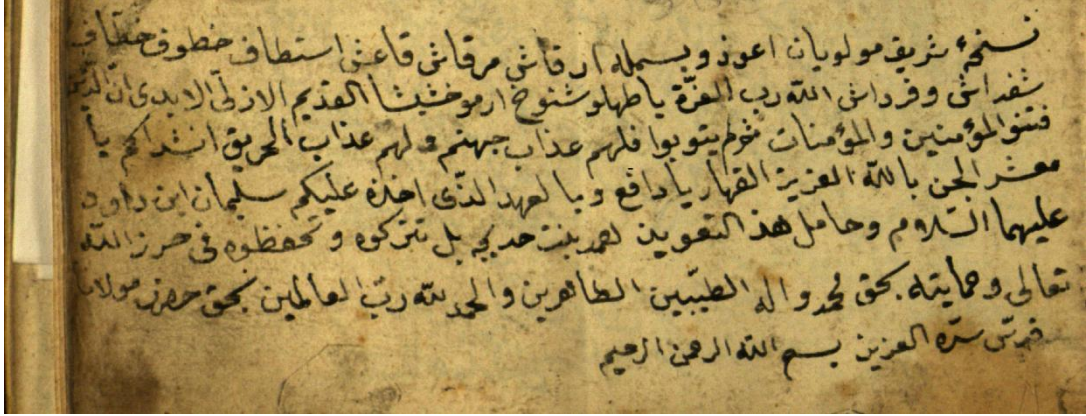 نسخهٔ شريف مولويان اعوذ و بسمله ارقاش مرقاش قاعش استطاف خطوف خطاف
شفداش وفرداش الله رب العزّة يا طهلوشنوخ ارموخشيشا القديم الازلى الابدى ان الّذين
فتنو المؤمنين والمؤمنات ثم لم يتوبوا فلهم عذاب جهنم ولهم عذاب الحريق انشدكم يا
معشر الجن بالله العزيز القهار يا دافع وبالعهد الذّى اخذه عليكم سليمان ابن داود
عليهما السّلام وحامل هذ التعويذ بنت بل تتركوه وتحفظوه فى حرز الله
تعالى وحمايته بحق محمد واله الطيّبين الطاهرين والحمد لله ربّ العالمين بحق حضرت مولانا
قدّس سرّه العزيز بسم الله الرحمن الرحيم